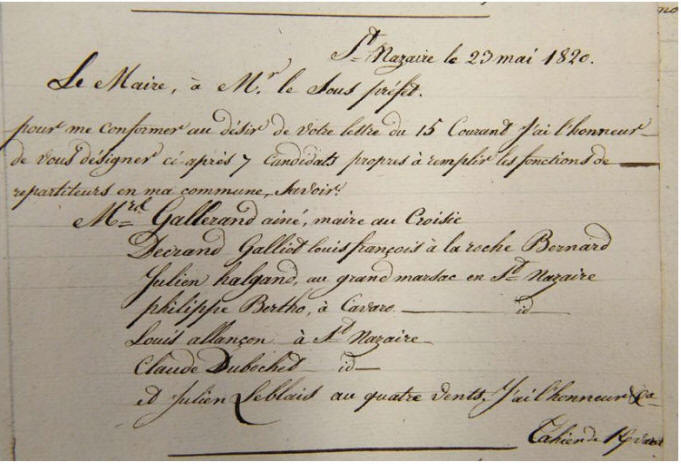 St. Nazaire le 23 mai 1820.
Le Maire, à Mr. le Sous préfet.
pour me conformer au désir de votre lettre du 15 Courand j'ai l'honneur
de vous désigner ci-après 7 candidats propres à remplir les fonctions de
repartiteurs en ma commune, Savoir:
Mrs. Gallerand ainé, maire au Croisic
Decrand Galliot louis françois à la roche Bernard
Julien halgand, au grand marsac en St. Nazaire
philippe Bertho, à Cavaro id
Louis allançon à St. Nazaire
Claude Dubochet id
et Julien Leblais au quatre vents, j'ai l'honneur &ca
Tahier de